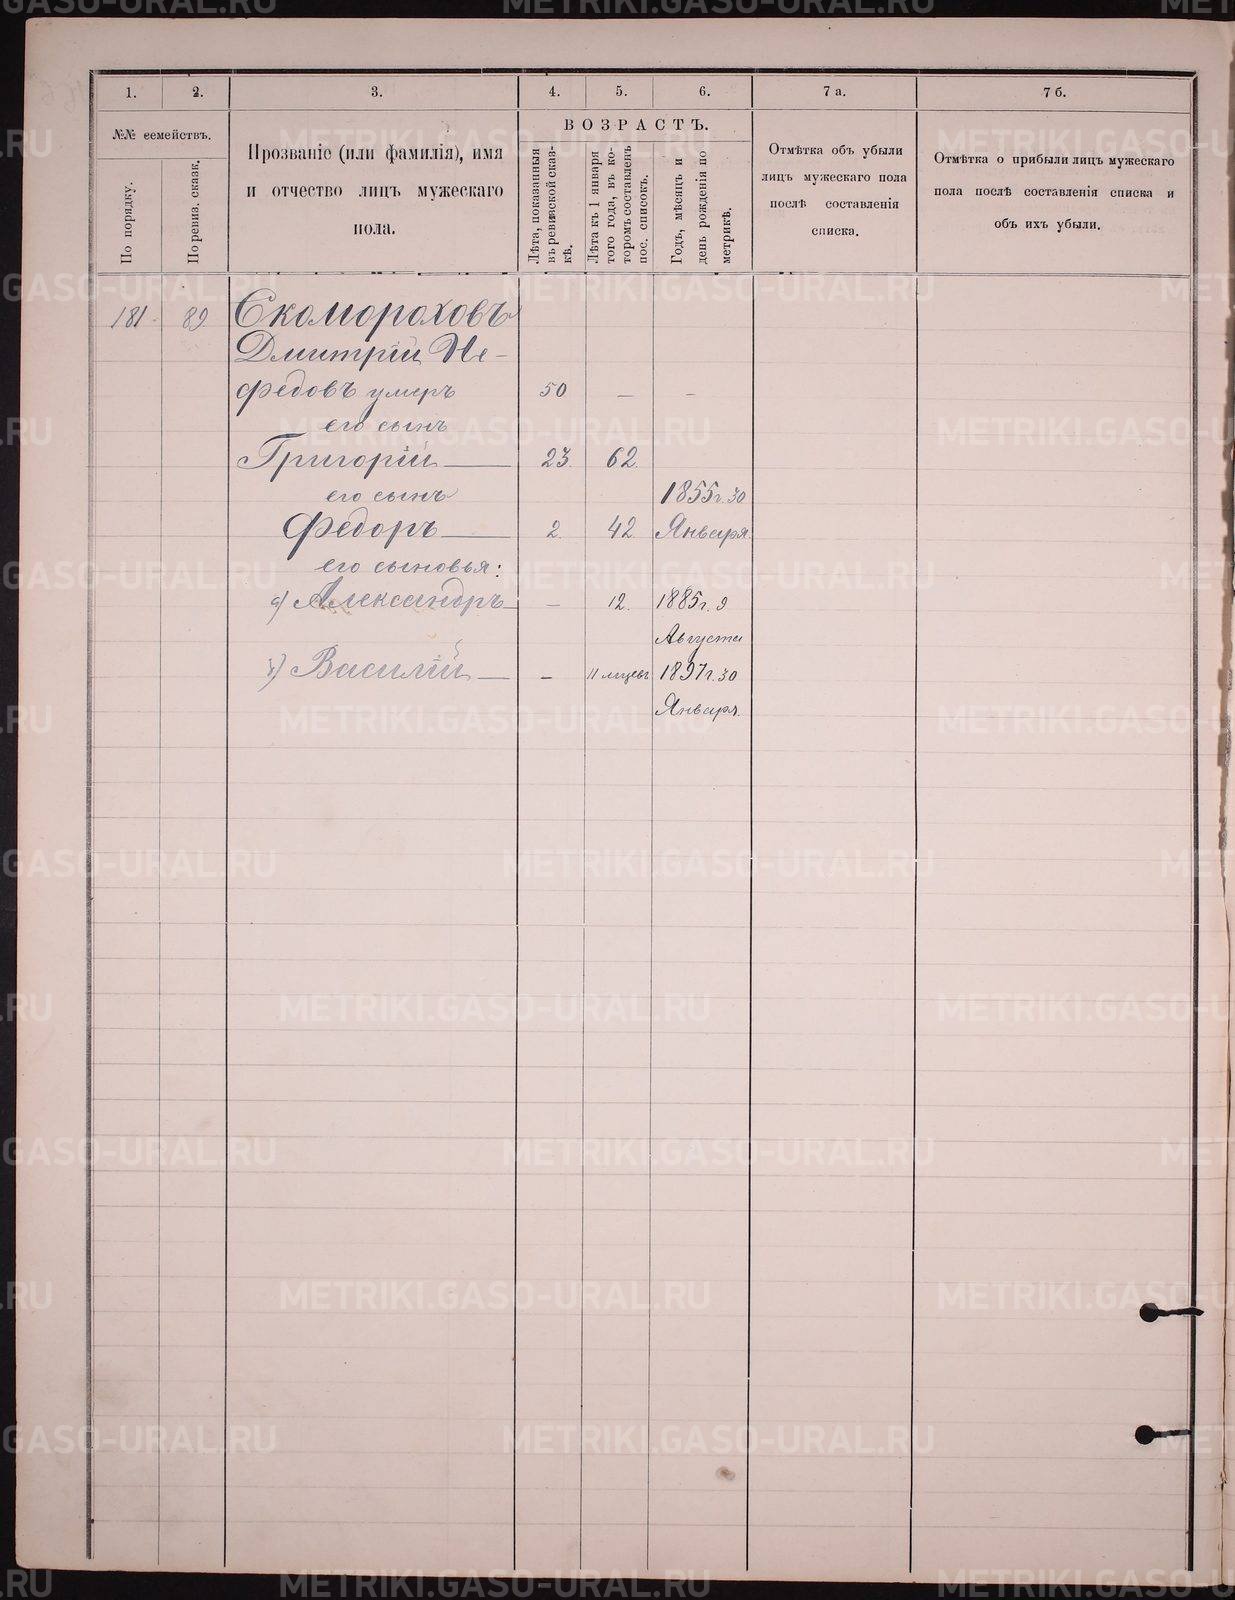 1. 2. 3. 4. 5. 6. 7 а. 7 б.
№№ семействъ.
По порядку.
По ревиз. сказк.
Прозваніе (или фамилія), имя
и отчество лицъ мужескаго
пола.
ВОЗРАСТЪ.
Лѣта, показанныя
въ ревизской сказ-
кѣ.
Лѣта къ 1 января
того года, въ ко-
торомъ составленъ
пос. списокъ.
Годъ, мѣсяцъ и
день рожденія по
метрикѣ.
Отмѣтка объ убыли
лицъ мужескаго пола
послѣ составленія
списка.
Отмѣтка о прибыли лицъ мужескаго
пола послѣ составленія списка и
объ ихъ убыли.
181 89 Скомороховъ
Дмитрій Не-
федовъ умеръ 50 – –
его сынъ
Григорій — 23. 62.
его сынъ 1855 г. 30
Федоръ — 2. 42 Января
его сыновья:
а) Александръ – – 12. 1885 г. 9
Августа
Василій — – 11 мѣсяц 1897 г. 30
Января.
METRIKI.GASO-URAL.RU